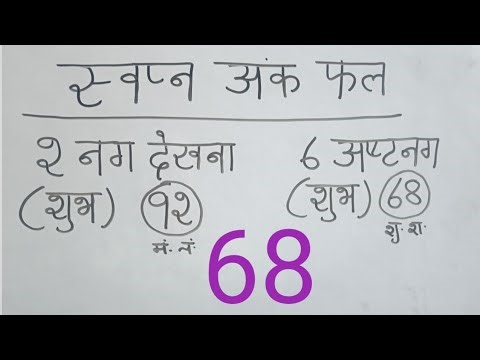 स्वप्न अंक फल
२ नग देखना
(शुभ) १२
मं. नं.
६ अष्टनग
(शुभ) 68
शु. श.
68